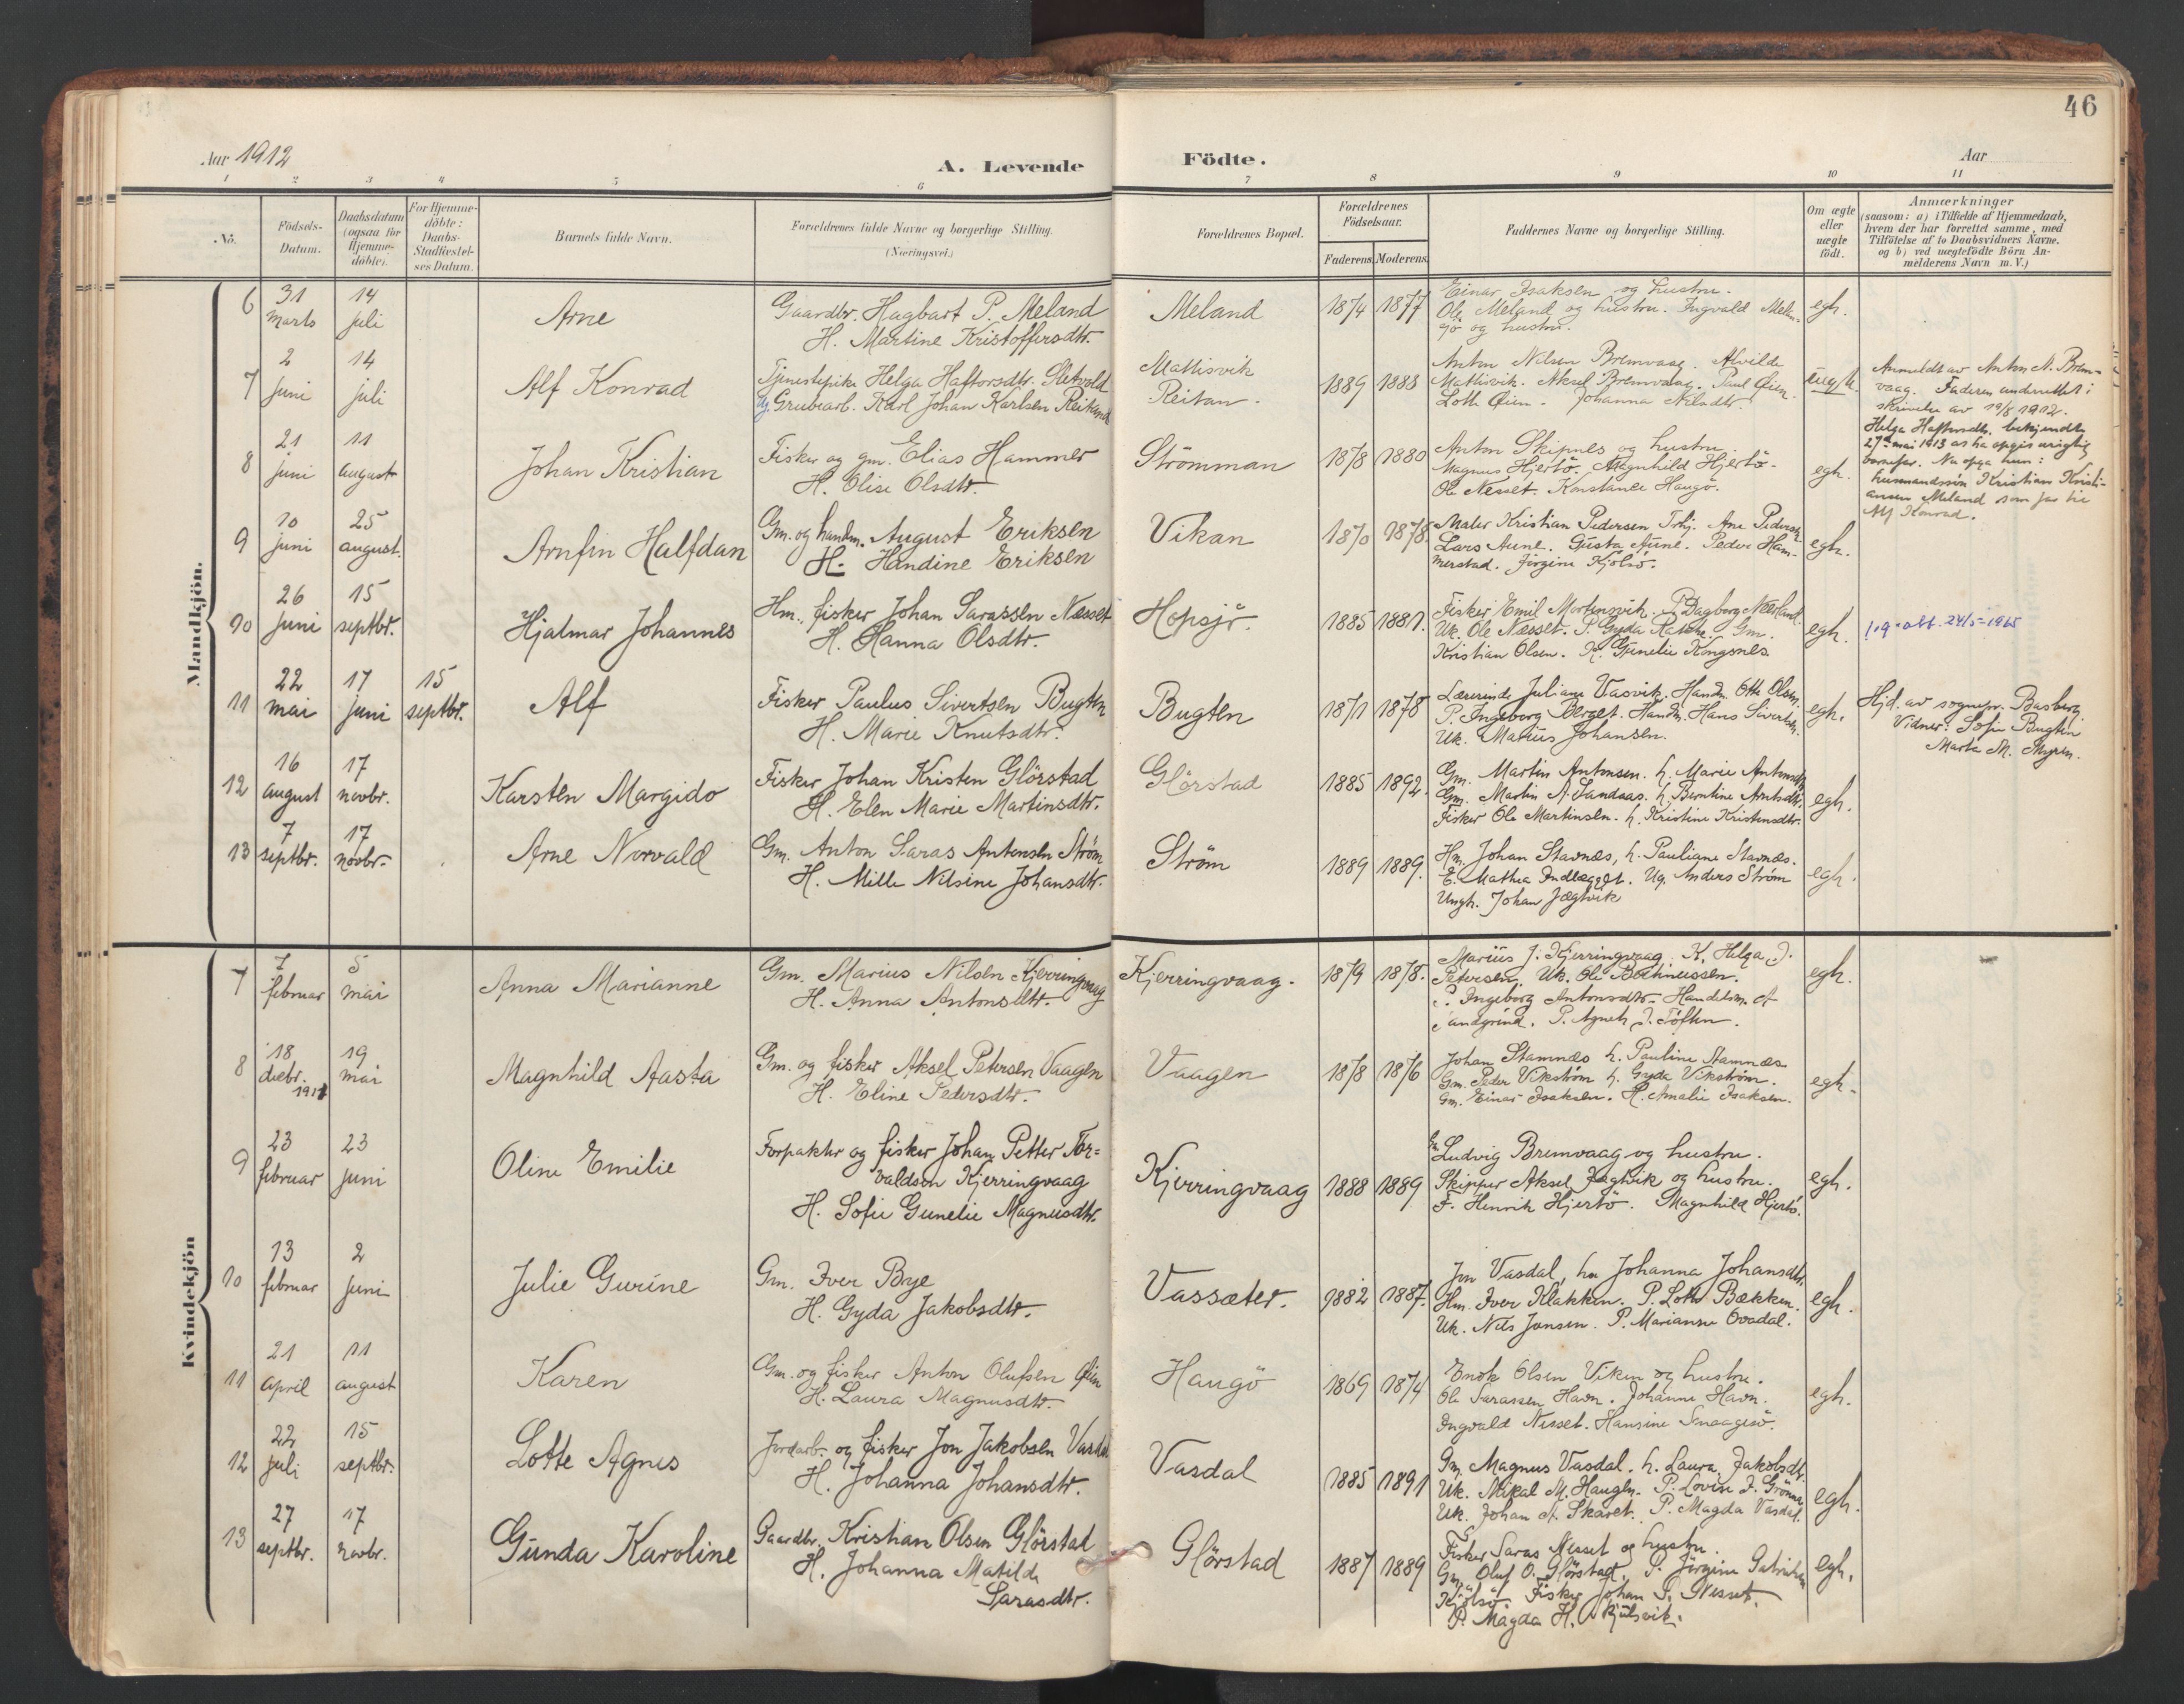 46
Aar 1912
A. Levende Födte.
Aar
1 2 3 4 5 6 7 8 9 10 11
No.
Födsels-Datum.
Daabsdatum (ogsaa for Hjemme-döbte).
For Hjemme-döbte: Daabs-Stadfæstel-ses Datum.
Barnets fulde Navn.
Forældrenes fulde Navne og borgerlige Stilling.
(Næringsvei.)
Forældrenes Bopæl.
Forældrenes Födselsaar.
Faderens. Moderens.
Faddernes Navne og borgerlige Stilling.
Om ægte eller uægte födt.
Anmærkninger
(saasom: a) i Tilfælde af Hjemmedaab,
hvem der har forrettet samme, med
Tilföielse af to Daabsvidners Navne.
og b) ved uægtefödte Börn An-
melderens Navn m. V.)
Mandkjön.
6 31 marts 14 juli Arne
Gaardbr. Hagbart P. Meland
H. Martine Kristoffersdtr.
Meland 1874 1877
Einar Isaksen og hustru.
Ole Meland og hustru. Ingvald Melan-
gö og hustru.
egh.
7 2 juni 14 juli Alf Konrad
Tjenestepike Helga Haftorsdtr. Sletvold
Ug. Grubearb. Karl Johan Karlsen Reitan
Mattisvik
Reitan.
1889 1888
Anton Nilsen Bremvaag. Alvilde
Mattisvik. Aksel Bremvaag. Paul Øien.
Lotte Øien. Johanna Nilsdtr.
uegh.
Anmeldt av Anton N. Brem-
vaag. Faderen underrettet i
skrivelse av 19/8 1912.
Helga Haftorsdtr. bekjendte
27de mai 1913 at ha opgit urigtig
barnefar. Nu opga hun:
husmandssön Kristian Kristi-
ansen Meland som far til
Alf Konrad.
8 21 juni 11 august Johan Kristian
Fisker og gm. Elias Hammer
H. Olise Olsdtr.
Strömman 1878 1880
Anton Skipnes og hustru.
Magnus Hjertö. Magnhild Hjertö.
Ole Nesset. Konstanse Haugö.
egh.
9 10 juni 25 august. Arnfin Halfdan
Gm. og handm. August Eriksen
H. Handine Eriksen
Vikan 1870 1878.
Maler Kristian Pedersen Trhj. Ane Pedersen
Lars Aune. Gusta Aune. Peder Ham-
merstad. Jörgine Kjölsö.
egh.
10 26 juni 15 septbr. Hjalmar Johannes
Hm., fisker Johan Sarassen Næsset
H. Hanna Olsdtr.
Hopsjö 1885 1881.
Fisker Emil Mortensvik. P. Dagborg Nerland.
Uk. Ole Næsset. P. Gyda Gm.
Kristian Olsen. K. Gunelie Kongsnes
egh.
24/5-1965
11 22 mai 17 juni 15 septbr. Alf
Fisker Paulus Sivertsen Bugten
H. Marie Knutsdtr.
Bugten 1871 1878
Lærerinde Juliane Vasvik. Handm. Otto Olsen.
P. Ingeborg Berget. Handm. Hans Sivertsen.
Uk. Marius Johansen.
egh.
Hjd. av sognepr. Basberg
Vidner: Sofie Bugten
Marta M. Myren.
12 16 august 17 novbr. Karsten Margido
Fisker Johan Kristen Glörstad
H. Elen Marie Martinsdtr.
Glörstad 1885 1892.
Gm. Martin Antonsen. h. Marie Antonsdtr
Gm. Martin A. Sandaas. h. Berntine Arntsdtr.
Fisker Ole Martinsen. h. Kristine Kristensdtr.
egh.
13 7 septbr. 17 novbr. Arne Norvald
Gm. Anton Saras Antonsen Ström
H. Mille Nilsine Johansdtr.
Ström 1889 1889.
Hm. Johan Stavnæs, h. Pauliane Stavnæs.
E. Mathea Indlægget. Ug. Anders Ström
Ungk. Johan Jægtvik
egh.
Kvindekjön
7 7 februar 5 mai Anna Marianne
Gm. Marius Nilsen Kjerringvaag
H. Anna Antonsdtr.
Kjerringvaag. 1879 1878.
Marius J. Kjerringvaag. K. Helga J.
Petersen. Uk. Ole
P. Ingeborg Antonsdtr. Handelsm. A
Sandgrind. P. Agnete J. Töften.
egh.
8 18 decbr. 1911 19 mai Magnhild Aasta
Gm. og fisker Aksel Petersen Vaagen
H. Eline Pedersdtr.
Vaagen 1878 1876
Johan Stamnæs h. Pauline Stamnæs
Gm. Peder Vikström h. Gyda Vikström.
Gm. Einar Isaksen. H. Amalie Isaksen.
egh.
9 23 februar 23 juni Oline Emilie
Forpakter og fisker Johan Petter Tor-
valdsen Kjerringvaag
H. Sofie Gunelie Magnusdtr.
Kjerringvaag 1888 1889
Gm. Ludvig Bremvaag og hustru.
Skipper Aksel Jægtvik og hustru.
F. Henrik Hjertö. Magnhild Hjertö.
egh.
10 13 februar 2 juni Julie Gurine
Gm. Iver Bye
H. Gyda Jakobsdtr.
Vassæter. 1882 1887.
Jon Vasdal, hu Johanna Johansdtr.
Hm. Iver Klakken. P. Lotte Bækken.
Uk. Nils Jansen. P. Marianne Ovadal.
egh.
11 21 april 11 august Karen
Gm. og fisker Anton Olufsen Øien
H. Laura Magnusdtr.
Haugö 1869 1874
Enok Olsen Viken og hustru.
Ole Sarassen Havn. Johanne Havn.
Ingvald Nesset. Hansine Snaagesö.
egh.
12 22 juli 15 septbr. Lotte Agnes
Jordarb. og fisker Jon Jakobsen Vasdal
H. Johanna Johansdtr.
Vasdal 1885 1891
Gm. Magnus Vasdal. h. Laura Jakobsdtr.
Uk. Mikal M. Haugen. P. Lovise J. Grönnes
Uk. Johan A. Skaret. P. Magda Vasdal.
egh.
13 27 septbr. 17 novbr. Gunda Karoline
Gaardbr. Kristian Olsen Glörstad
H. Johanna Matilde
Sarasdtr.
Glörstad 1887 1889
Fisker Saras Nesset og hustru.
Gm. Oluf O. Glörstad. P. Jörgine
Kjölsö. Fisker Johan S. Nesset.
P. Magda H. Kjulsvik.
egh.